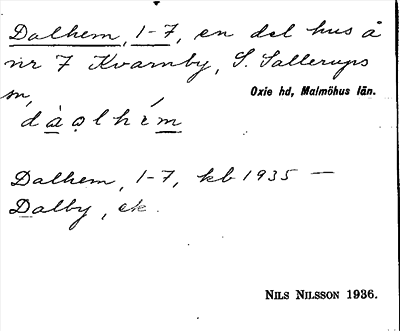 Dalhem, 1-7, en del hus å
nr 7 Kvarnby, S. Sallerups
sn,
Oxie hd, Malmöhus län.
dàǫlhém
Dalhem, 1-7, kb 1935 —
Dalby, ek.
NILS NILSSON 1936.